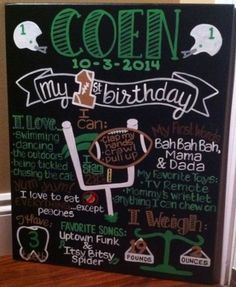 1 COEN 1
10-3-2014
my 1st birthday
I Love:
•swimming
•dancing
•the outdoors
•being tickled
•chasing the cat
I Can:
clap my
hands,
crawl
pull up
I sign
My First Words:
Bah Bah Bah,
Mama &
Dada
My Favorite Toys:
TV Remote
Mommy's wristlet
anything I can chew on
Yum Yum!
I love to eat
EVERYTHING
...except
peaches
I Have:
3
FAVORITE SONGS:
Uptown Funk
&
Itsy Bitsy
Spider
I Weigh:
POUNDS
OUNCES